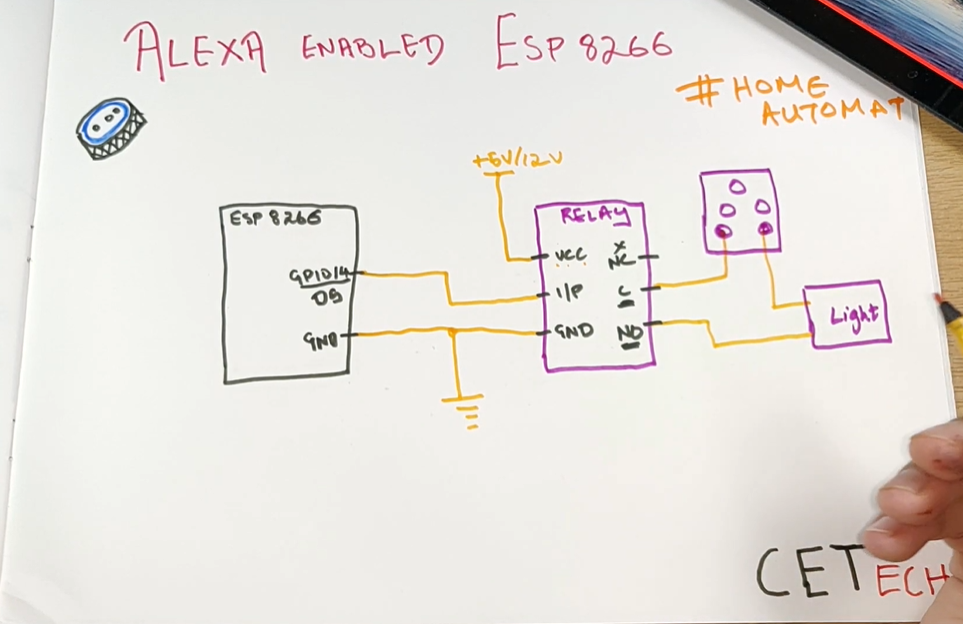 ALEXA ENABLED ESP 8266
# HOME
AUTOMAT
+5V/12V
ESP 8266
GPIO14
D5
GND
RELAY
VCC
NC
I/P
C
GND
NO
Light
CETECH